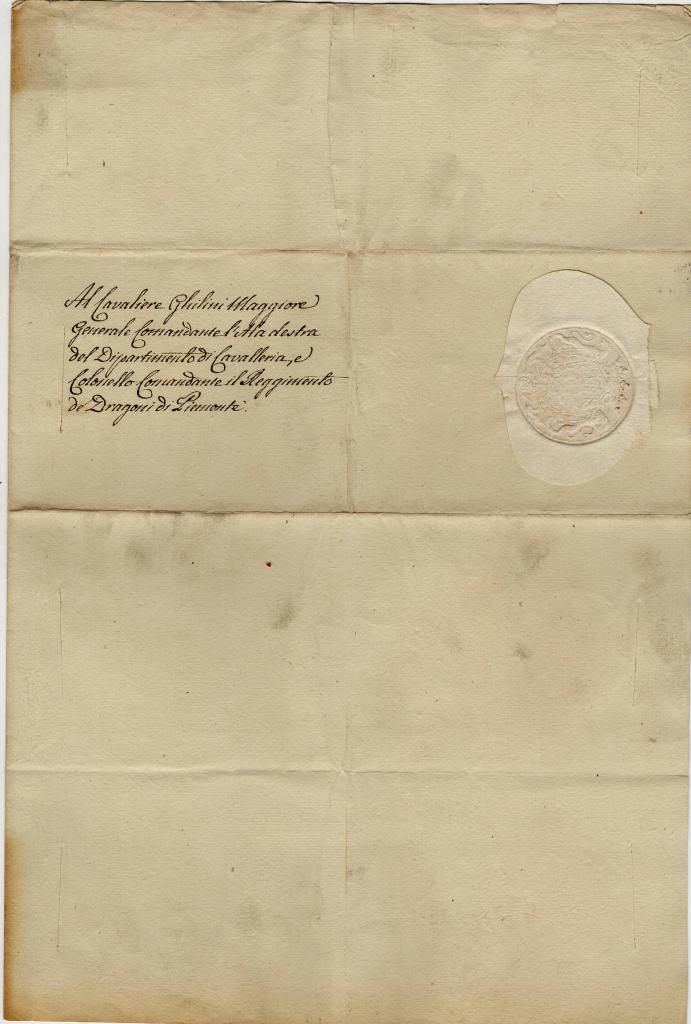 Al Cavaliere Ghilini Maggiore
Generale Comandante l'Ala destra
del Dipartimento di Cavalleria, e
Colonello Comandante il Reggimento
de Dragoni di Piemonte.